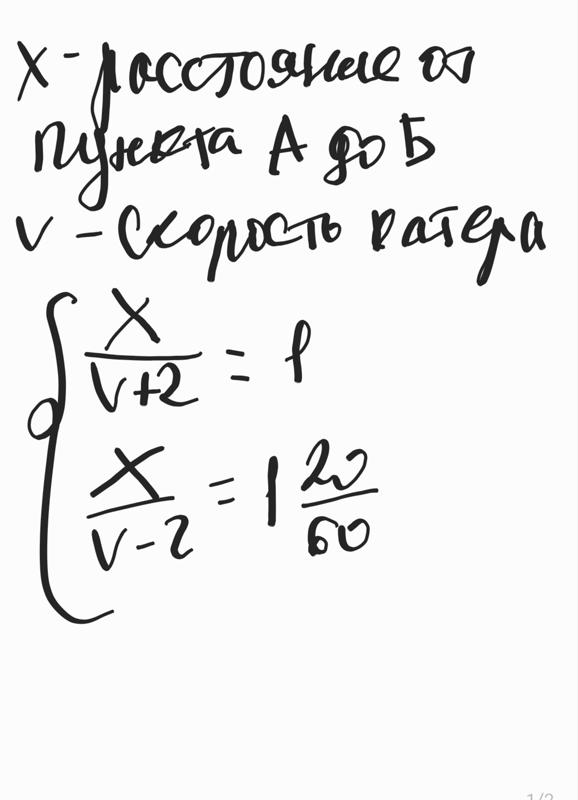 x - расстояние от
пункта А до Б
v - скорость катера
x
v+2
= 1
x
v-2
= 1 20
60
1/2